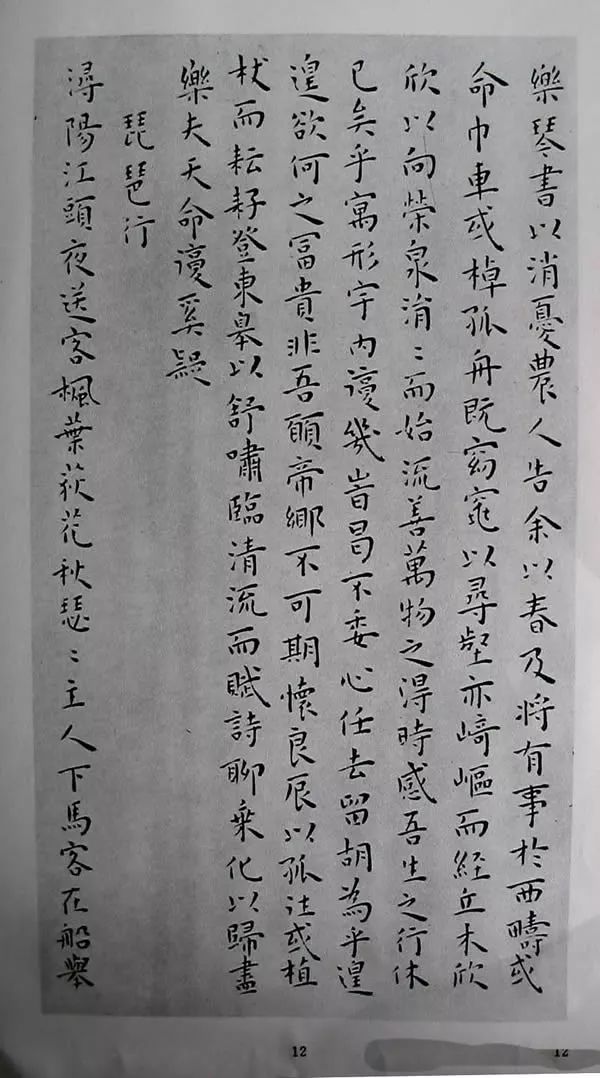 樂琴書以消憂農人告余以春及將有事於西疇或
命巾車或棹孤舟既窈窕以尋壑亦崎嶇而經丘木欣
欣以向榮泉涓〻而始流善萬物之得時感吾生之行休
已矣乎寓形宇内復幾旹曷不委心任去留胡為乎遑
遑欲何之冨貴非吾願帝鄉不可期懷良辰以孤往或植
杖而耘耔登東皋以舒嘯臨清流而賦詩聊乗化以歸盡
樂夫天命復奚疑
琵琶行
潯陽江頭夜送客楓葉荻花秋瑟〻主人下馬客在船舉
12
12